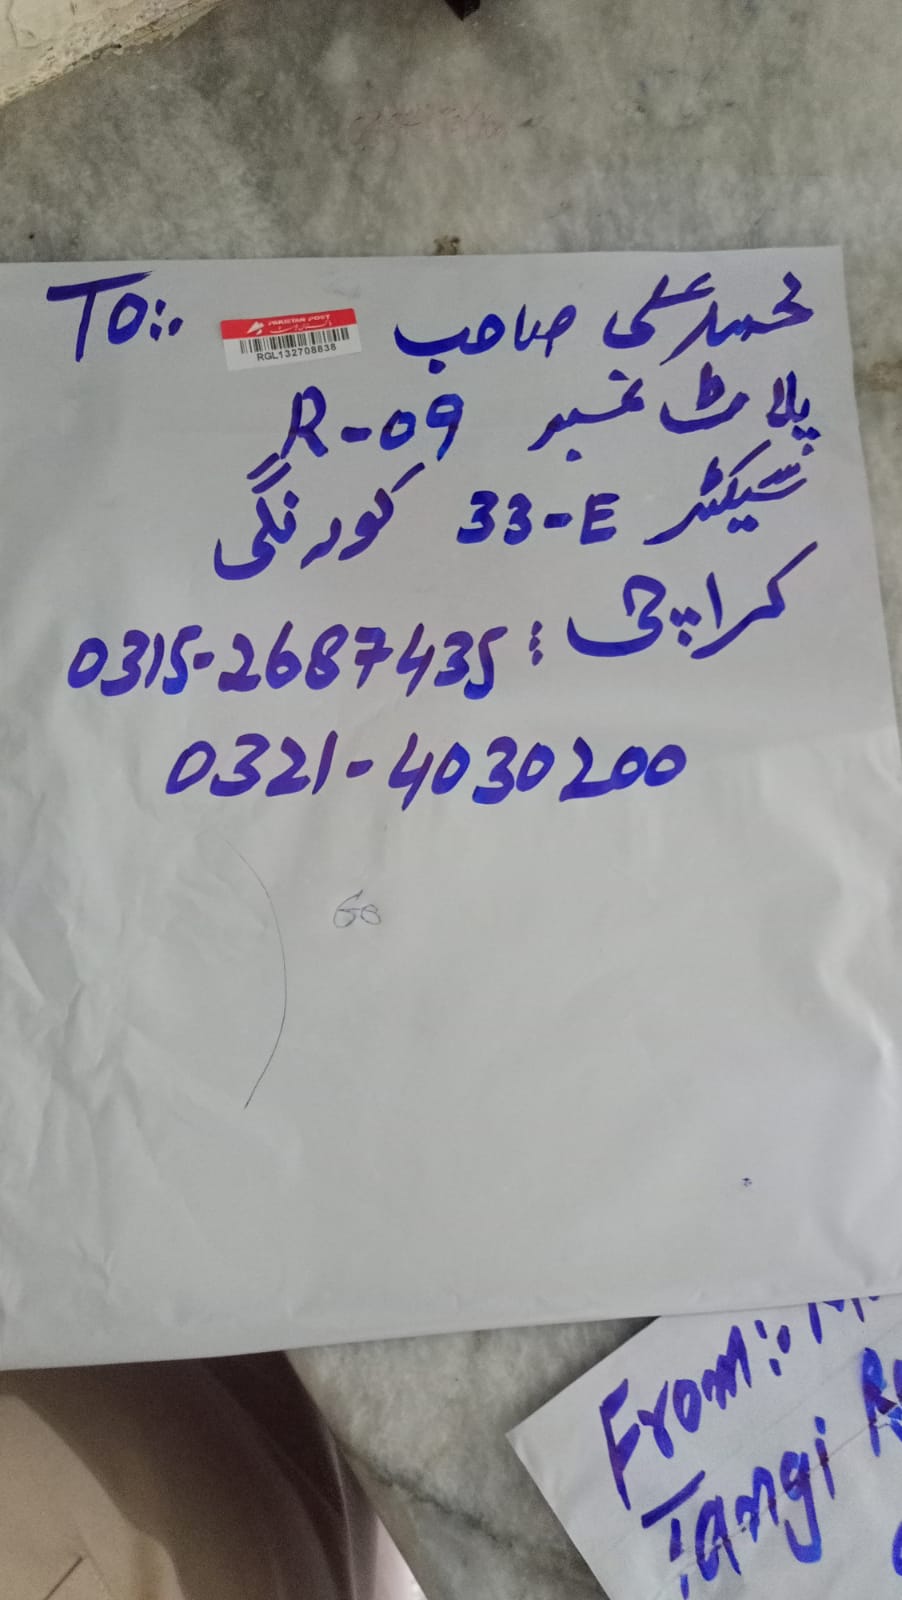 To:. محمد علی صاحب
PAKISTAN POST
RGL132708838
پلاٹ نمبر R-09
سیکٹر 33-E کورنگی
کراچی : 0315-2687435
0321-4030200
60
From:.
Tangi